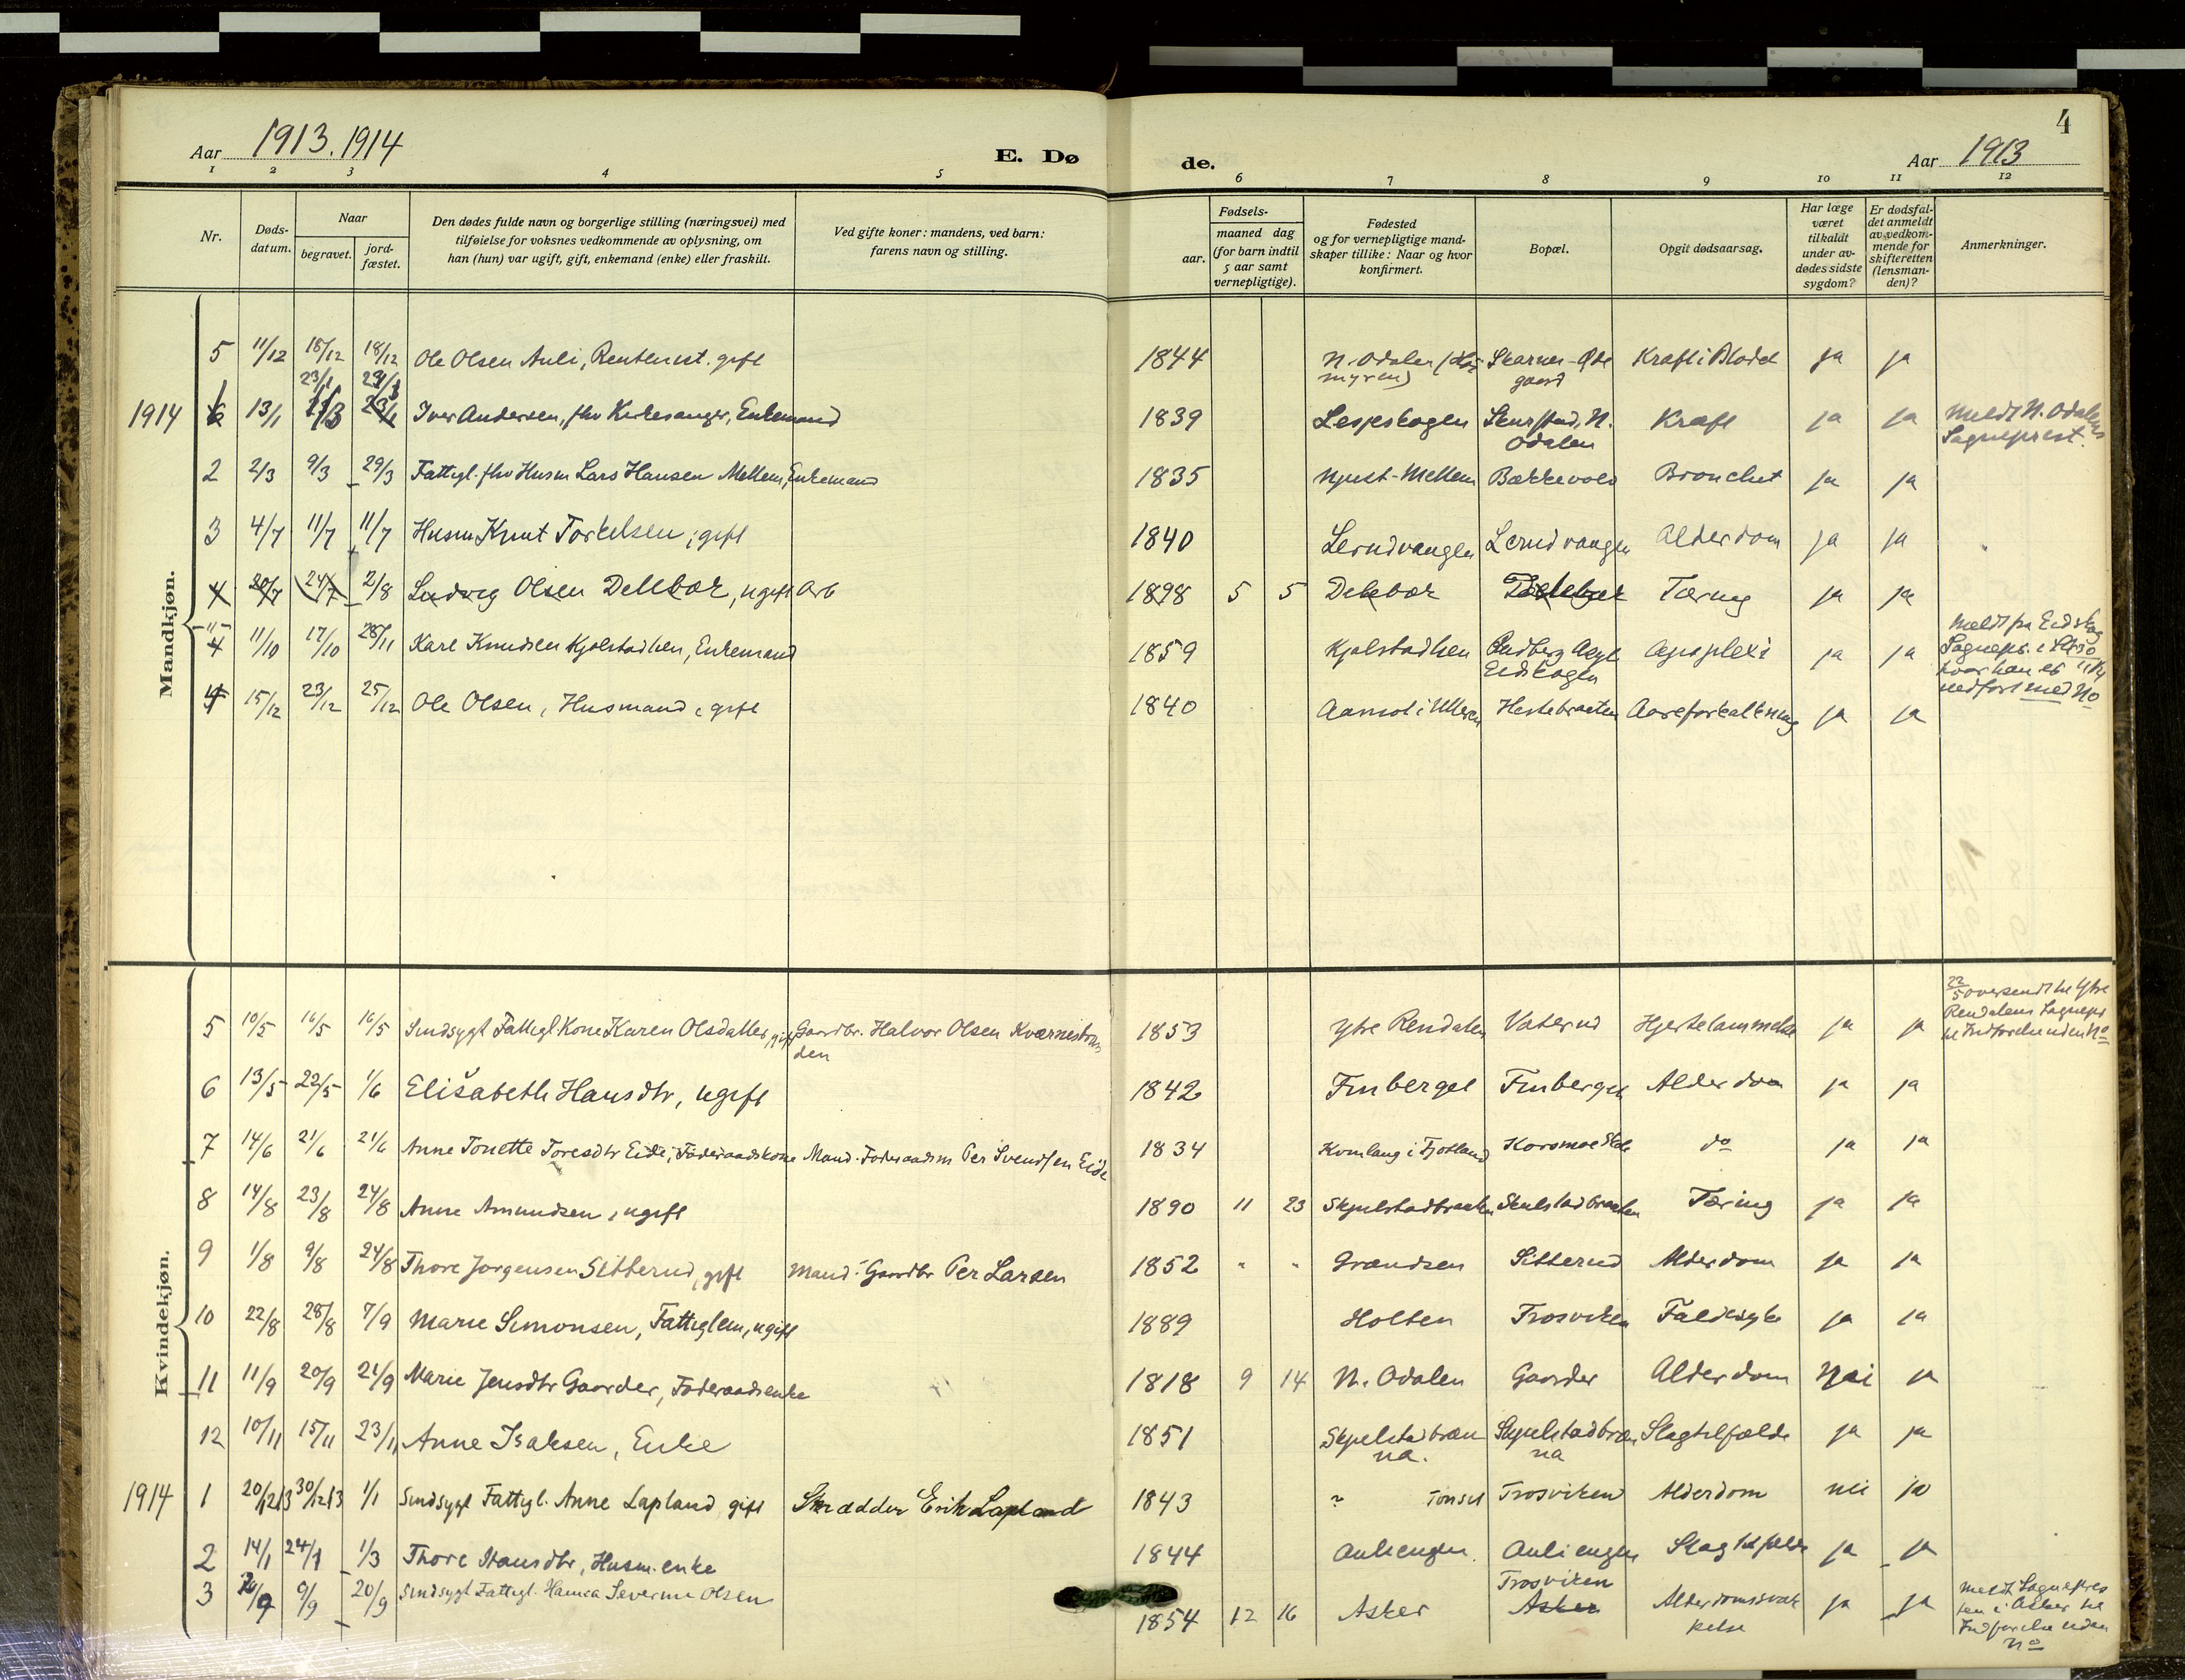 4
Aar 1913. 1914
E. Dø
de.
Aar 1913
1 2 3 4 5 6 7 8 9 10 11 12
Nr.
Døds-
datum.
Naar
begravet.
jord-
fæstet.
Den dødes fulde navn og borgerlige stilling (næringsvei) med
tilføielse for voksnes vedkommende av oplysning, om
han (hun) var ugift, gift, enkemand (enke) eller fraskilt.
Ved gifte koner: mandens, ved barn:
farens navn og stilling.
Fødsels-
aar.
maaned dag
(for barn indtil
5 aar samt
vernepligtige).
Fødested
og for vernepligtige mand-
skaper tillike: Naar og hvor
konfirmert.
Bopæl.
Opgit dødsaarsag.
Har læge
været
tilkaldt
under av-
dødes sidste
sygdom?
Er dødsfal-
det anmeldt
av vedkom-
mende for
skifteretten
(lensman-
den)?
Anmerkninger.
Mandkjøn.
5 11/12 18/12 18/12 Ole Olsen Auli, Rentenist. gift 1844 N. Odalen Skarnes-Øde
gaard Kræft i Blodet ja ja
1914 13/1 23/1 Iver Andersen, fhv Kirkesanger, Enkemand 1839 N.
Odalen Kræft ja ja Meldt N. Odalens
Sogneprest.
2 2/3 9/3 29/3 Fattigl. fhv Husm Lars Hansen Mellem, Enkemand 1835 Bækkevold Bronchit ja ja
3 4/7 11/7 11/7 Husm Knut Torkelsen, gift 1840 Lerudvangen Lerudvangen Alderdom ja ja
4 20/7 24/7 2/8 Ludvig Olsen Dellebær, ugift Arb 1898 5 5 Dellebær Tæring ja ja
4 11/10 17/10 28/11 Karl Knudsen Kjolstadlien, Enkemand 1859 Kjolstadlien
Eidskogen Apoplexi ja ja Meldt fra Eidskog
15/12 23/12 25/12 Ole Olsen, Husmand, gift 1840 Aamot i Ulleren Hestebraaten Aareforkalkning ja ja
Kvindekjøn.
5 10/5 16/5 16/5 Sindsygt Fattigl Kone Karen Olsdatter, gift Gaardbr. Halvor Olsen Kværnestrøm
den 1853 Ytre Rendalen Vaterud Hjertelammelse ja ja 22/5 oversendt til Ytre
Rendalens Sognepr
til Indførelse uden No
6 13/5 22/5 1/6 Elisabeth Hansdtr, ugift 1842 Finberget Finberget Alderdom ja ja
7 14/6 21/6 21/6 Anne Tonette Toresdtr Eide, Føderaadskone Mand. Føderaadsm Per Svendsen Eide 1834 Kvinlaug i Fjotland Korsmo do ja ja
8 14/8 23/8 24/8 Anne Amundsen, ugift 1890 11 23 Skjulstadbraaten Skulstadbraaten Tæring ja ja
9 1/8 9/8 24/8 Thore Jørgensen Sitterud, gift Mand: Gaardbr Per Larsen 1852 " " Grændsen Sitterud Alderdom ja ja
10 22/8 28/8 7/9 Marie Simonsen, Fattiglem, ugift 1889 Holten Trosviken Faldesyke ja ja
11 11/9 20/9 21/9 Marie Jensdtr Gaarder, Føderaadsenke 1818 9 14 N. Odalen Gaarder Alderdom Nei ja
12 10/11 15/11 23/11 Anne Isaksen, Enke 1851 Skjulstadbræn
na. Skjulstadbræn
na Slagtilfælde ja ja
1914 1 20/12 13 30/12 13 1/1 Sindsygt Fattigl. Anne Lapland, gift Skrædder Erik Lapland 1843 ? Tønset Trosviken Alderdom nei ja
2 14/1 24/1 1/3 Thore Hansdtr, Husm. enke 1844 Auliengen Auliengen Slagtilfælde ja ja
3 9/9 20/9 Sindsygt Fattigl. Hanna Severine Olsen 1854 12 16 Asker Trosviken
Asker Alderdomssvæk
kelse ja ja Meldt Sognepres
ten i Asker til
Indførelse uden
No